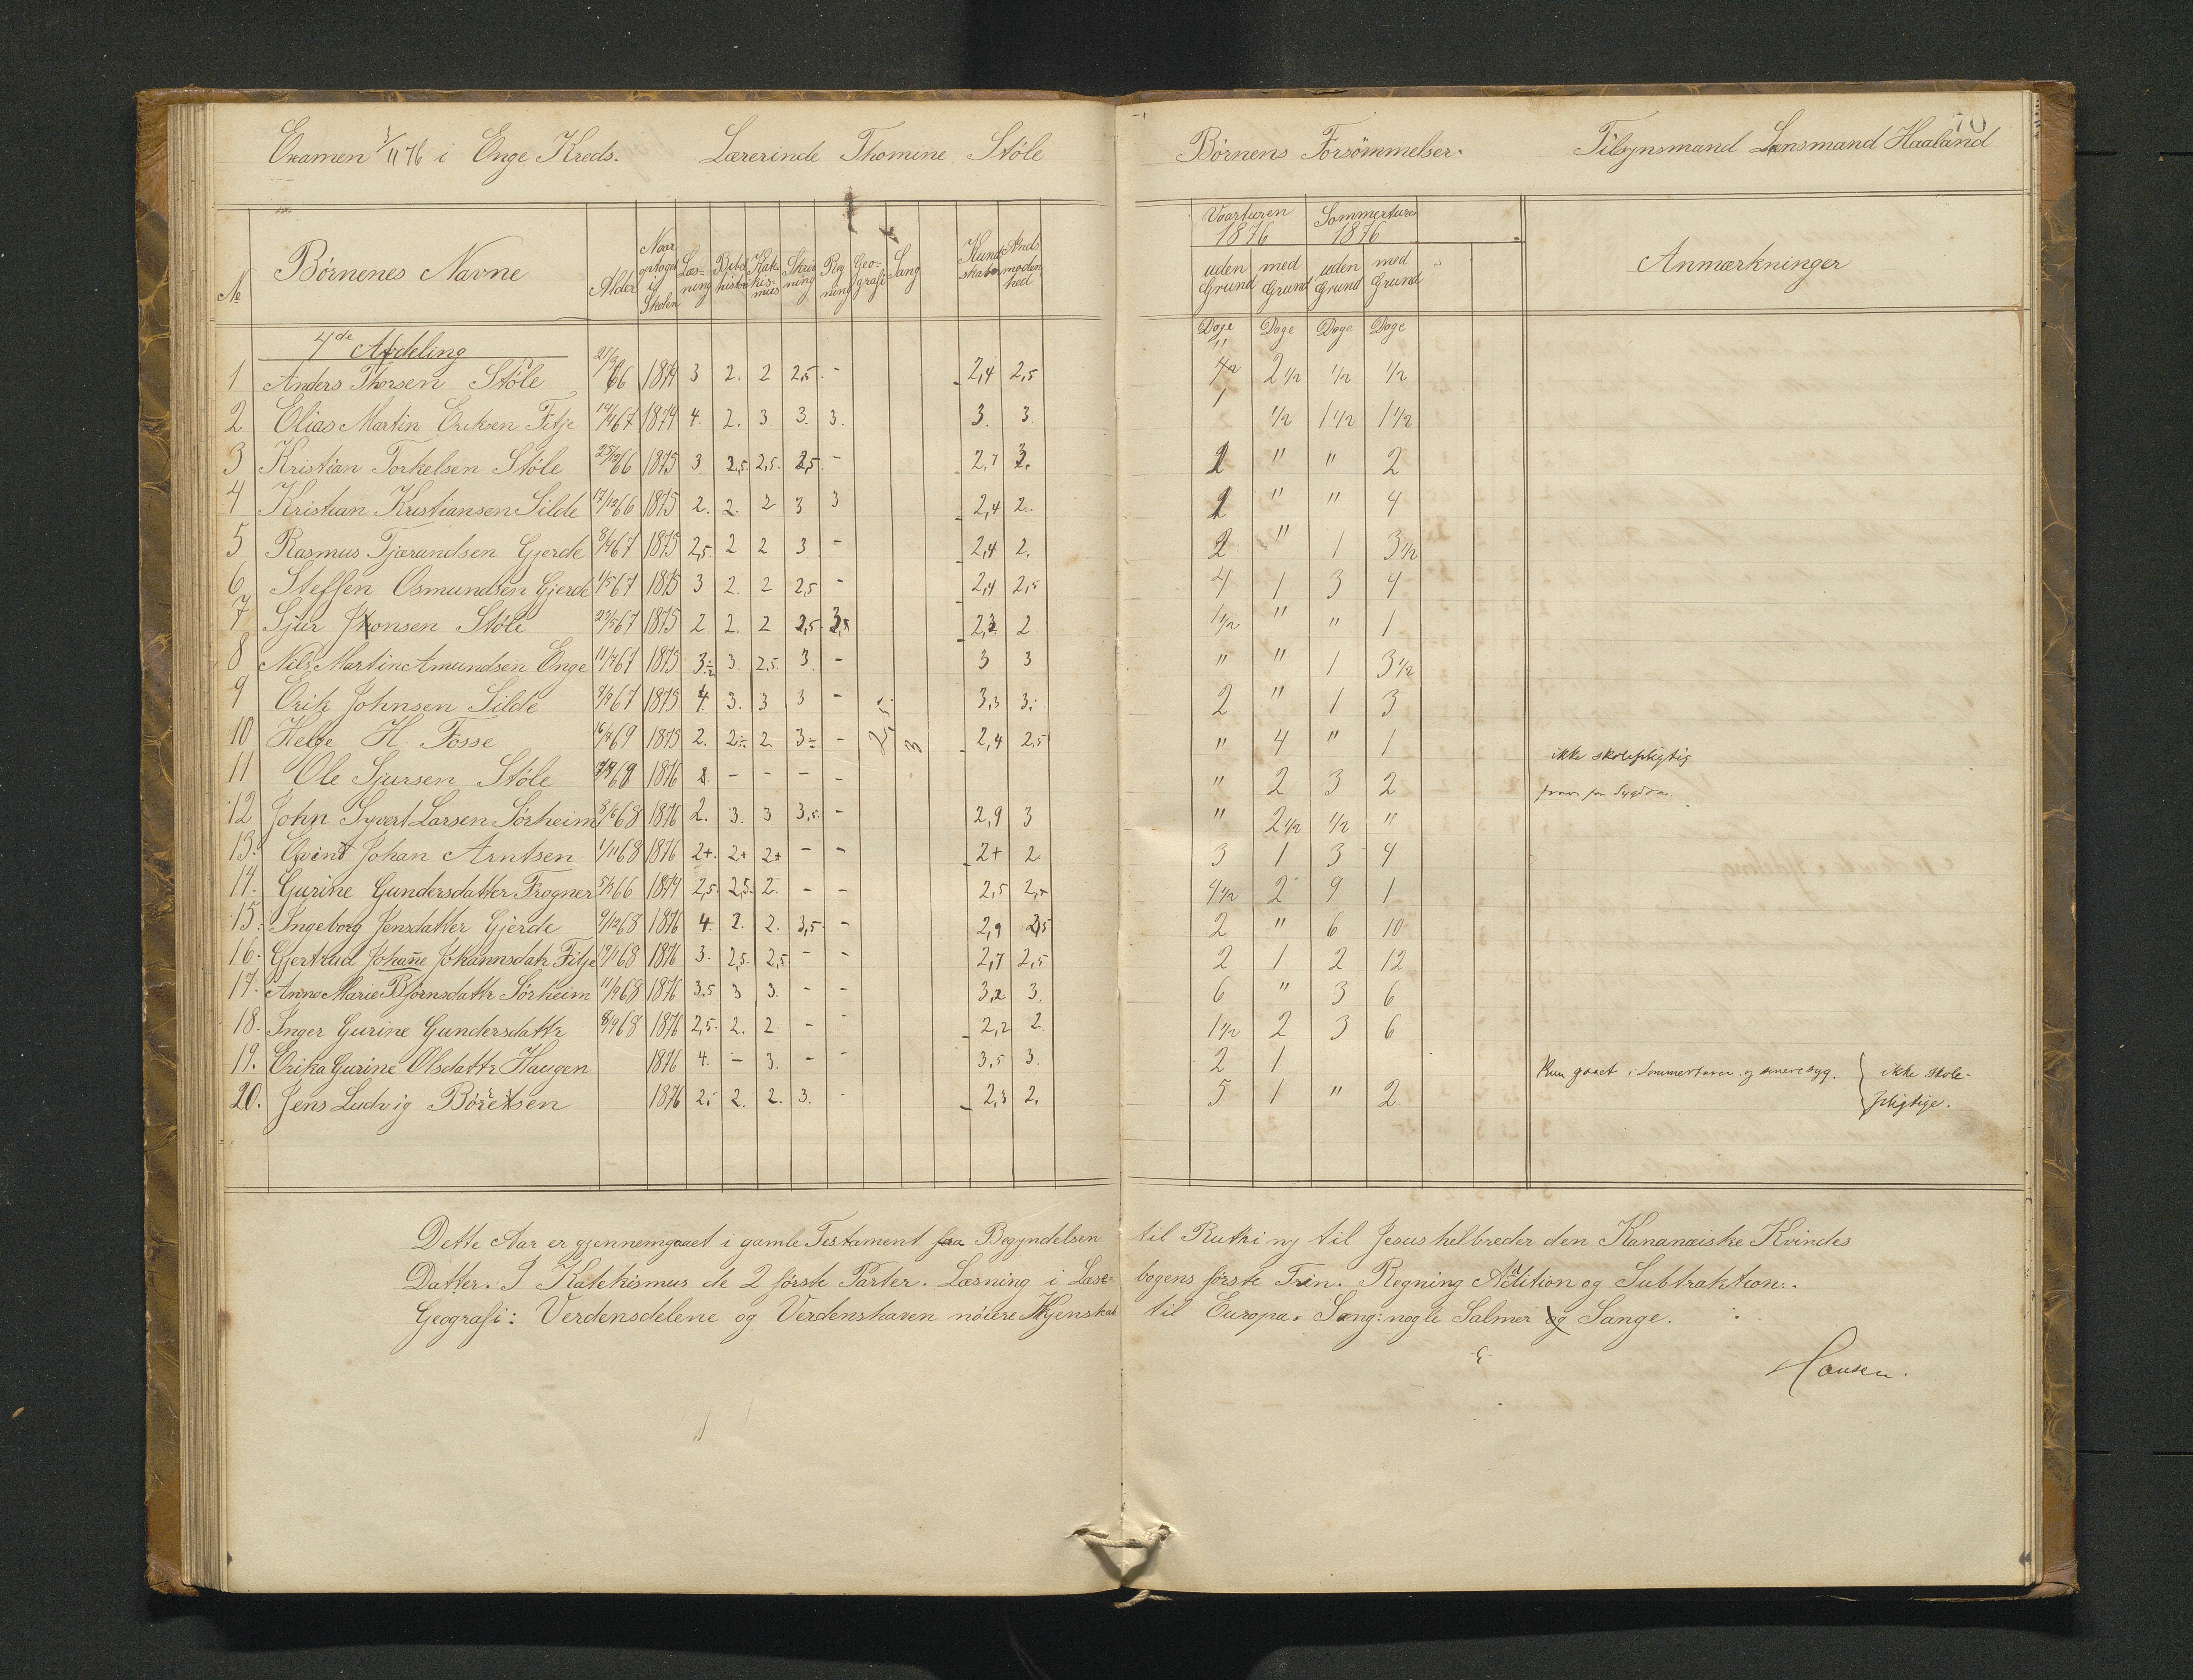 Examen 3/11 76 i Enge Kreds. Lærerinde Thomine Støle
№ Børnenes Navne Alder Naar optaget i Skolen Læsning Bibelhistorie Katekismus Skrivning Regning Geografi Sang Kundskaber Aandsmodenhed
4de Afdeling
1 Anders Thorsen Støle 21/3 66 1874 3 2. 2 2,5. - 2,4 2,5
2 Elias Martin Eriksen Fitje 19/4 67 1874 4. 2. 3. 3. 3. 3. 3
3 Kristian Torkelsen Støle 25/12 66 1875 3 2,5. 2,5. 2,5. - 2,7 3.
4 Kristian Kristiansen Silde 17/12 66 1875 2. 2. 2 3 3 2,4 2.
5 Rasmus Tjærandsen Gjerde 8/4 67 1875 2,5. 2 2 3 - 2,4 2.
6 Steffen Osmundsen Gjerde 1/5 67 1875 3 2. 2 2,5 - 2,4 2,5
7 Sjur Jonsen Støle 22/5 67 1875 2 2. 2 2,5. 3,5 2,3 2.
8 Nils Martin Amundsen Enge 11/7 67 1875 3÷ 3. 2,5. 3. - 3 3
9 Erik Johnsen Silde 7/9 67 1875 4. 3. 3 3 - 3,3 3.
10 Helge H. Fosse 69 1875 2. 2÷ 2. 3÷ - 2,5 3 2,4 2,5
11 Ole Sjursen Støle 68 1876 - - - -
12 John Syvert Larsen Sørheim 8/6 68 1876 2. 3. 3 3,5. - 2,9 3
13. Eivind Johan Arntsen 1/11 68 1876 2+. 2+ 2+ - - 2+ 2
14. Gurine Gundersdatter Frogner 5/3 66 1874 2,5. 2,5. 2. - - 2,5 2,5
15. Ingeborg Jensdatter Gjerde 9/12 68 1876 4. 2. 2. 3,5. - 2,9 2,5
16. Gjertrud Johanne Johannsdatr Fitje 19/1 68 1876 3. 2,5. 2,5. - - 2,7 2,5
17. Anna Marie Bjørnsdattr Sørheim 11/9 68 1876 3,5 3 3. - - 3,2 3.
18. Inger Gurine Gundersdattr 8/9 68 1876 2,5. 2. 2 - - 2,2 2.
19. Erika Gurine Olsdattr Haugen 1876 4. - 3. - - 3,5 3.
20. Jens Ludvig Børetsen 1876 2. 2. 2. 3. - 2,3 2.
Dette Aar er gjennemgaaet i gamle Testament fra Begyndelsen
Datter. I Katekismus de 2 første Parter. Læsning i Læse-
Geografi: Verdensdelene og Verdenshaven nøiere Kjenskab
70
Børnens Forsømmelser. Tilsynsmand Lensmand Haaland
Vaarturen 1876 Sommerturen 1876 Anmærkninger
uden Grund med Grund uden Grund med Grund
Dage Dage Dage Dage
2 1/2 1/2 1/2
1 1/2 1 1/2 1 1/2
2 " " 2
" " 4
2 " 1 3 1/2
4 1 3 4
1 1/2 " " 1
" " 1 3 1/2
2 " 1 3
" 4 " 1 ikke skolepligtig
" 2 3 2
" 2 1/2 1/2 "
3 1 3 4
4 1/2 2 9 1
2 " 6 10
2 1 2 12
6 " 3 6
1 1/2 2 3 6
2 1 Kun gaaet i Sommerturen og senere syg. ikke skole-
5 1 " 2 pligtige.
til Ruth i ny til Jesus helbreder den Kananæiske Kvindes
bogens første Trin. Regning Addition og Subtraktion.
til Europa. Sang: nogle Salmer og Sange.
Hansen.